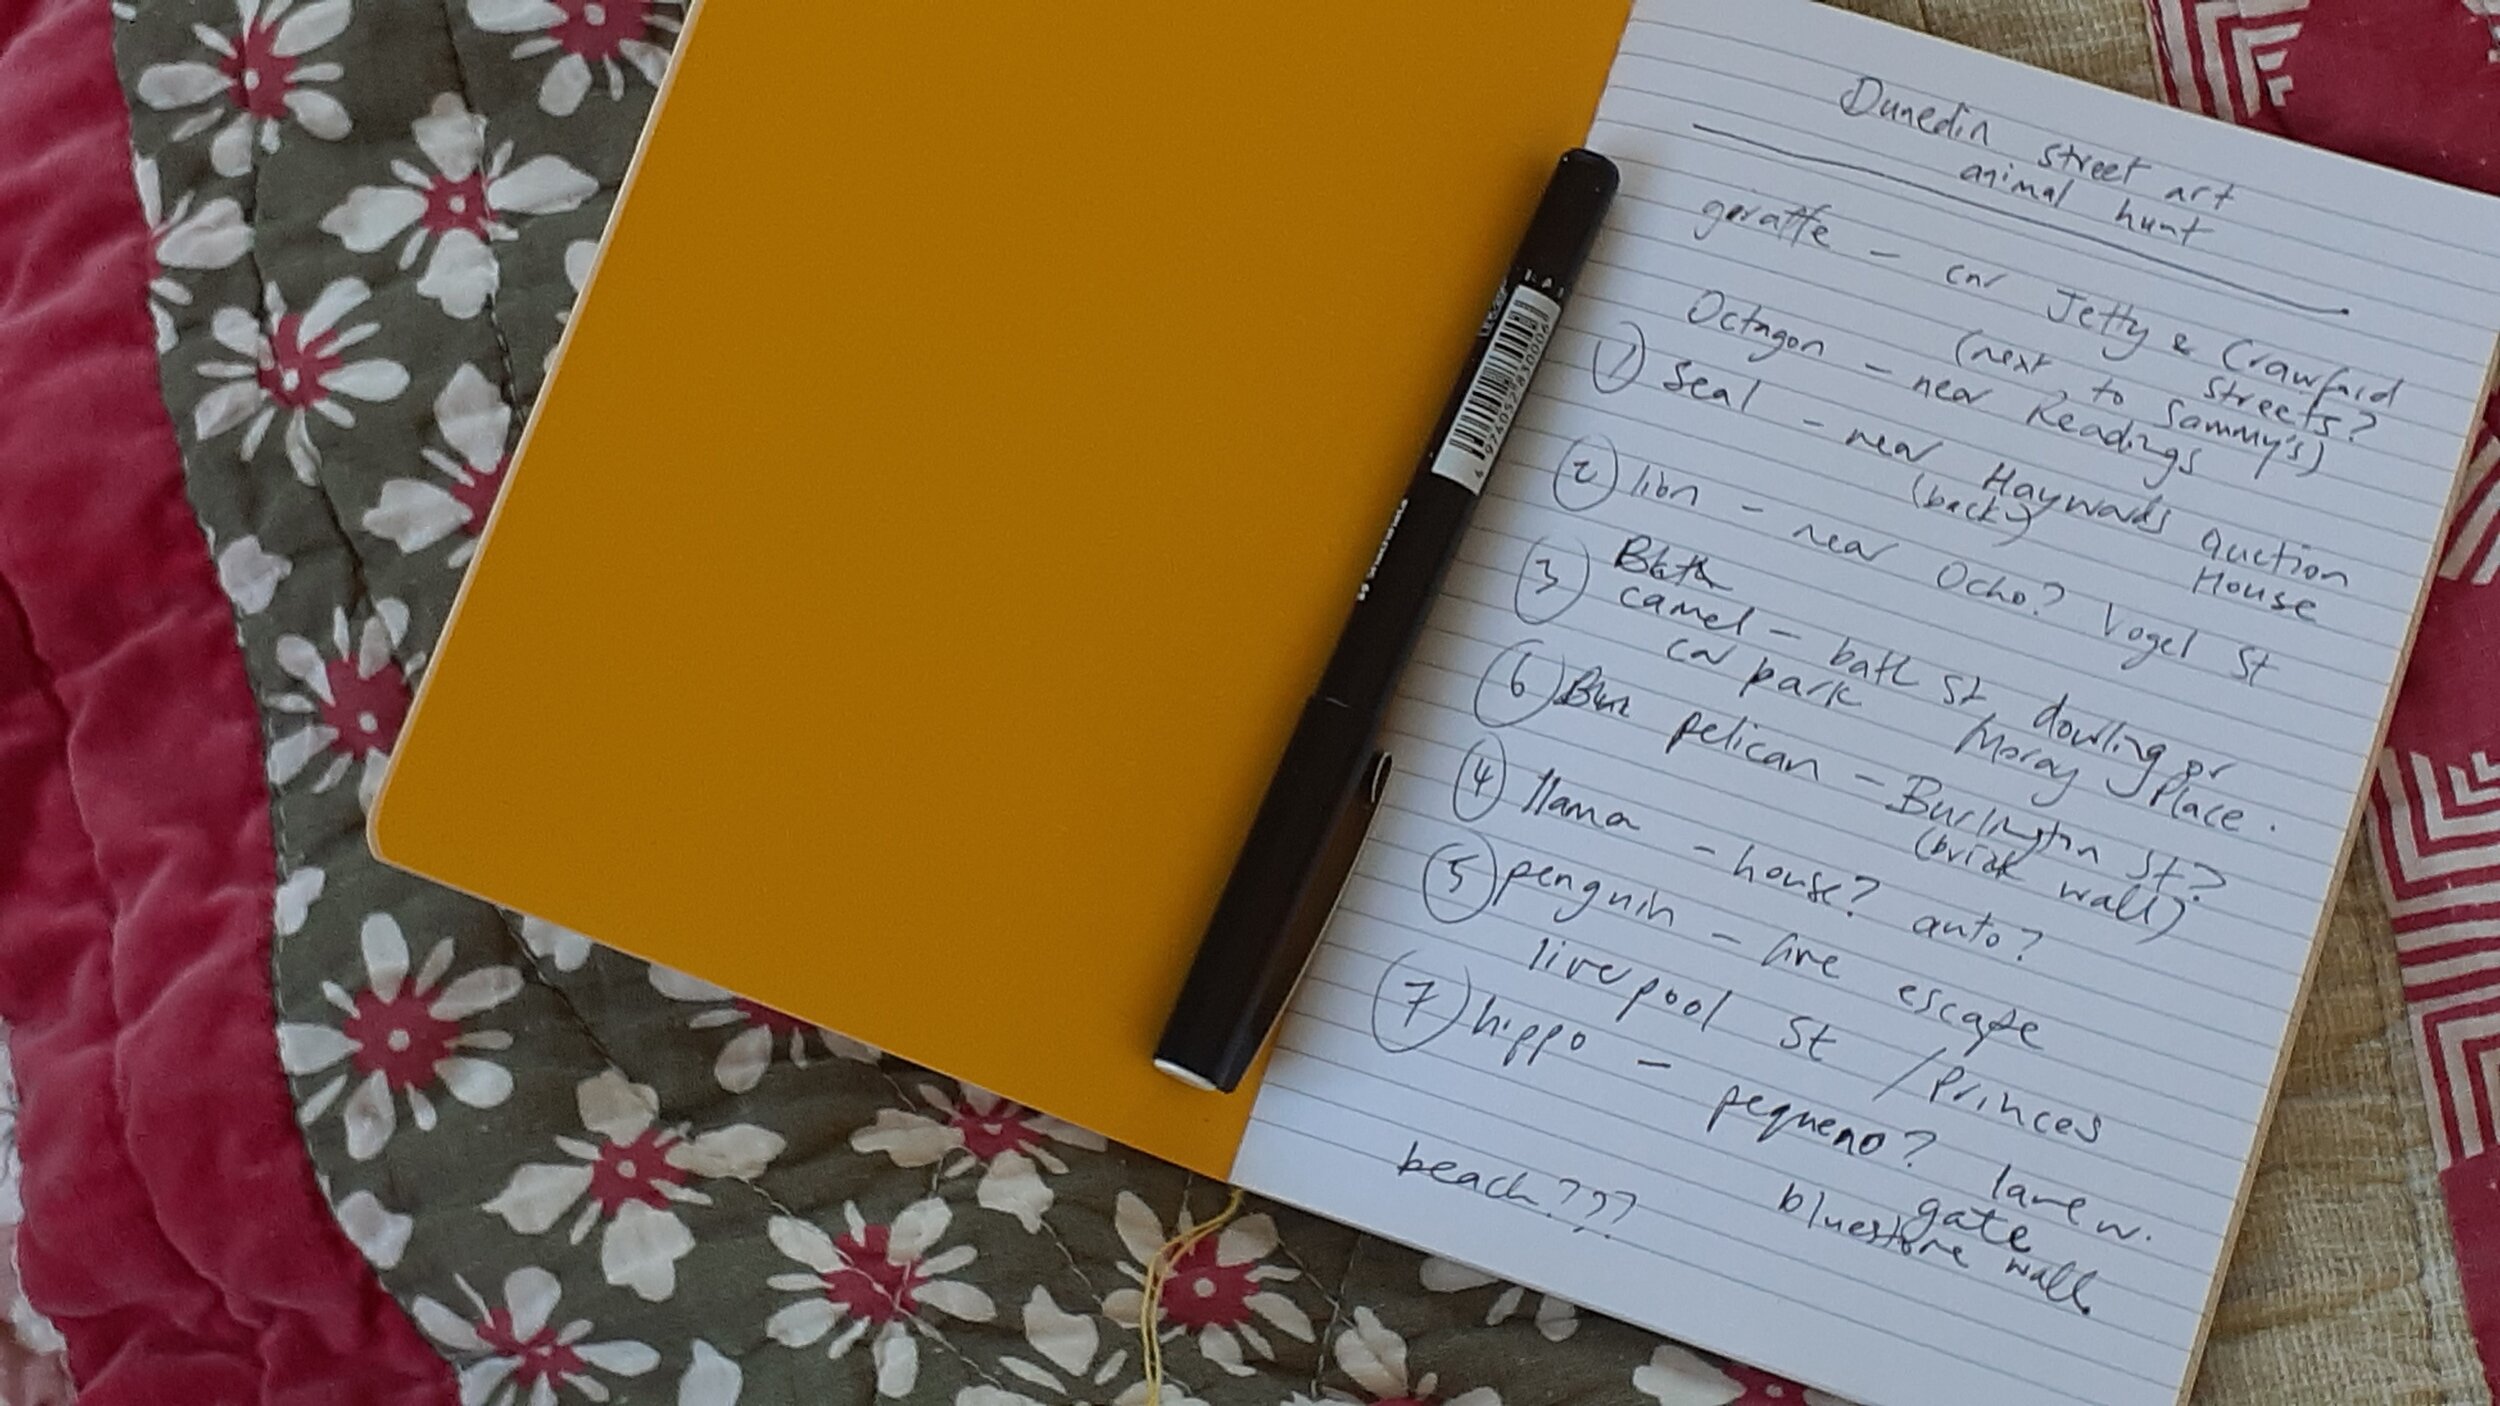 Dunedin street art
animal hunt
geraffe - cnr Jetty & Crawford
streets?
(next to Sammy's)
Octagon - near Readings
① Seal - near Haywards auction
(back) House
② lion - near Ocho? Vogel St
③ Bath
camel - bath St, dowling or
car park Moray Place.
⑥ pelican - Burlington St?
(brick wall)
④ llama - house? auto?
⑤ penguin - fire escape
liverpool St / Princes
⑦ hippo - pequeno? lane w.
gate
bluestone wall.
beach???